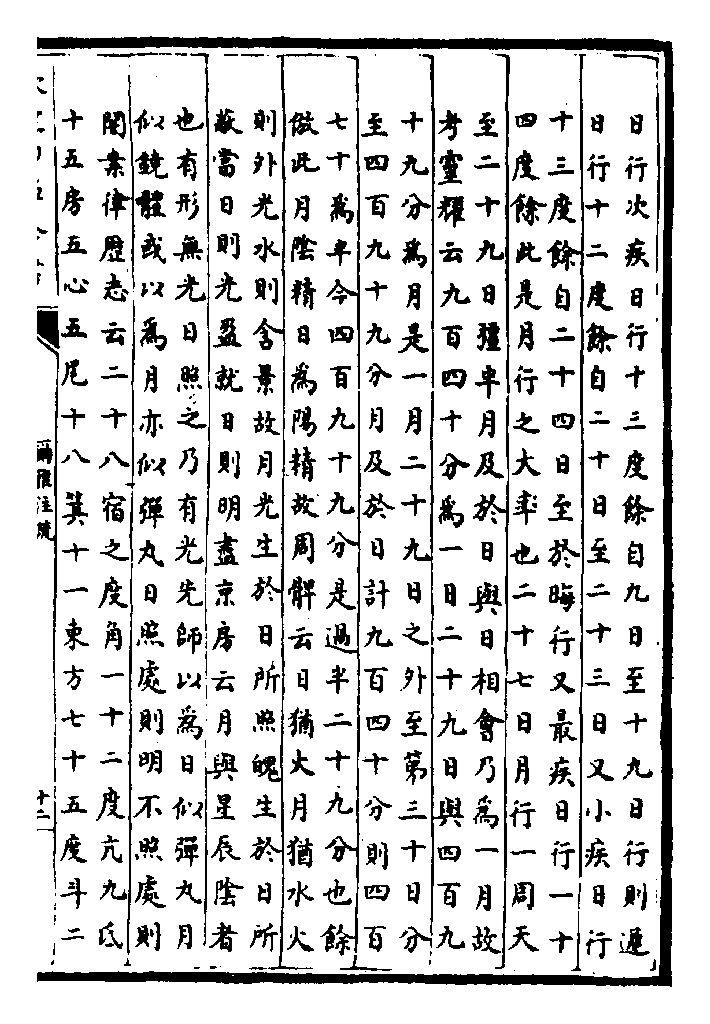 日行次疾日行十三度餘自九日至十九日行則遲
日行十二度餘自二十日至二十三日又小疾日行
十三度餘自二十四日至於晦行又最疾日行一十
四度餘此是月行之大率也二十七日月行一周天
至二十九日彊半月及於日與日相會乃為一月故
考靈耀云九百四十分為一日二十九日與四百九
十九分為月是一月二十九日之外至第三十日分
至四百九十九分月及於日計九百四十分則四百
七十為半今四百九十九分是過半二十九分也餘
倣此月陰精日為陽精故周髀云日猶火月猶水火
則外光水則含景故月光生於日所照魄生於日所
蔽當日則光盈就日則明盡京房云月與星辰陰者
也有形無光日照之乃有光先師以為日似彈丸月
似鏡體或以為月亦似彈丸日照處則明不照處則
闇案律歷志云二十八宿之度角一十二度亢九氐
十五房五心五尾十八箕十一東方七十五度斗二
爾雅注疏
十二